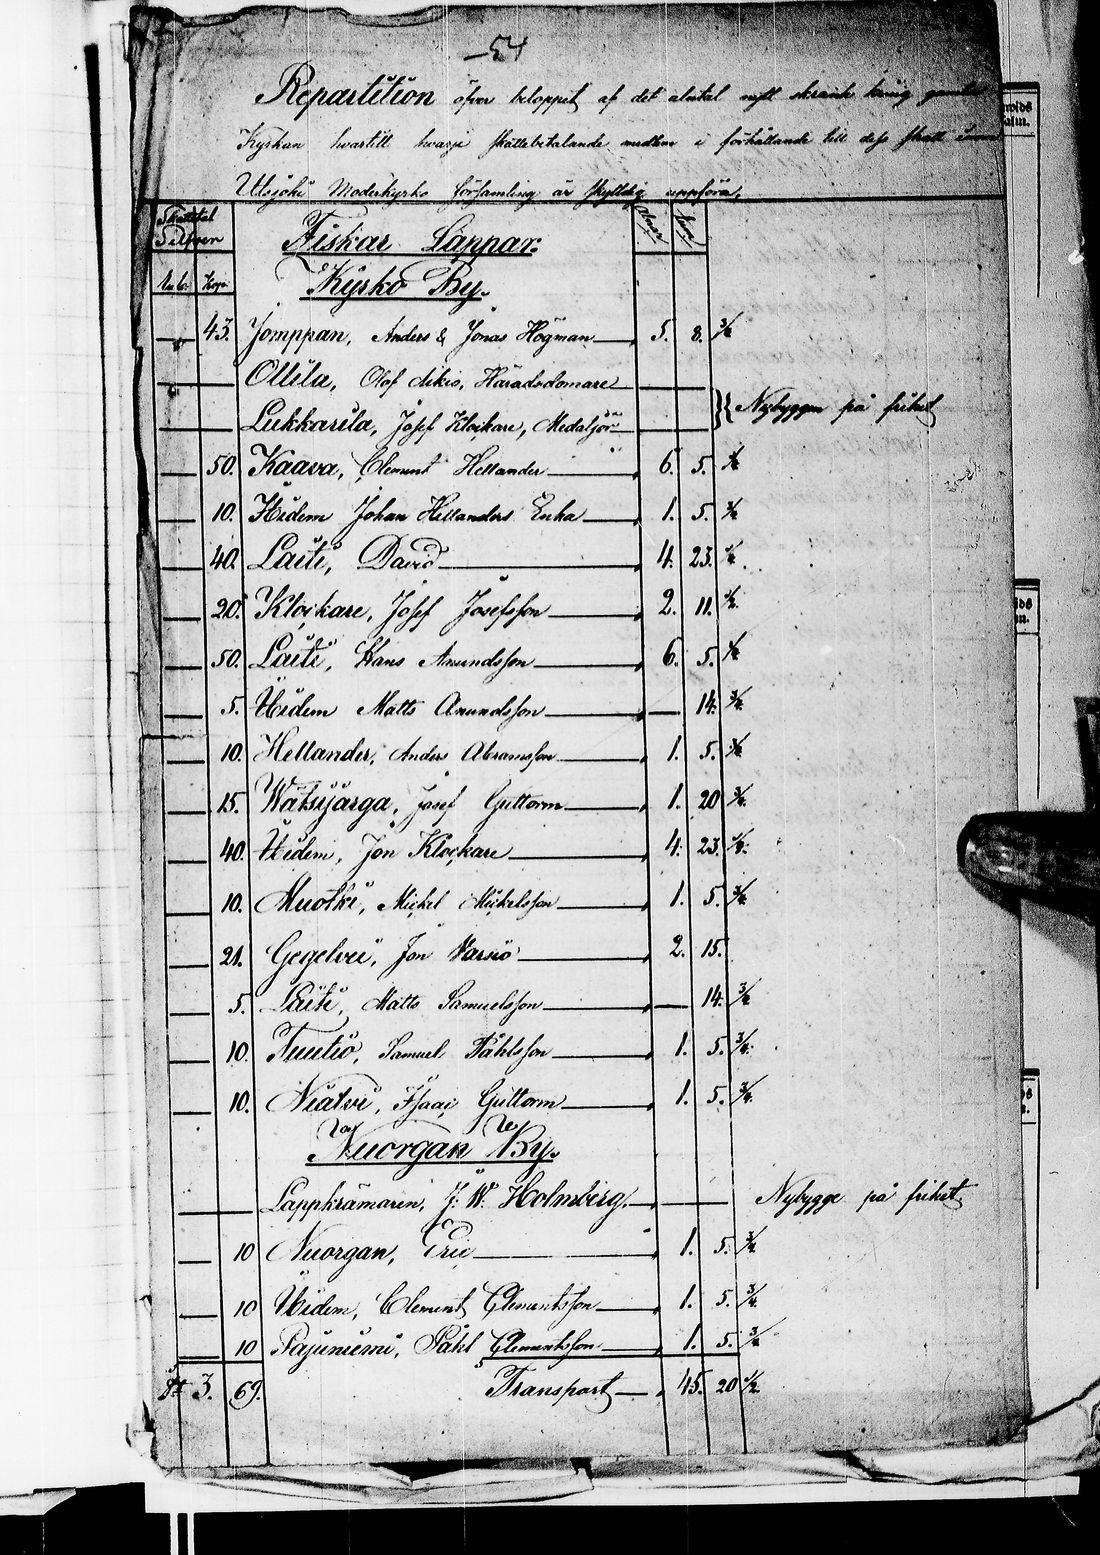 54
Repartition öfver beloppet af det alnital nytt skrank kring gamla
Kyrkan hvartill hvarje skattebetalande medlem i förhållande till dess skatt inom
Utsjoki Moderkyrko församling är skyldig uppföra.
Skattetal Silfver Alnar Tum
Fiskar Lappar.
Rub: Kop: Kyrko By.
— 43. Jomppan, Anders & Jonas Högman — 5. 8. 3/4
— — Ollila, Olof Aikio, Häradsdomare — —
— — Lukkarila, Josef Klockare, Medaljör — — }{ Nybyggen på frihet
— 50. Kaava, Clement Hellander — 6. 5. 1/2
— 10. Idem Johan Hellanders Enka — 1. 5. 3/4
— 40. Laiti, David — 4. 23. 1/2
— 20. Klockare, Josef Josefsson — 2. 11. 1/2
— 50. Laiti, Hans Amundsson — 6. 5. 1/2
— 5. Idem Matts Amundsson — — 14. 3/4
— 10. Hellander, Anders Abramsson — 1. 5. 3/4
— 15. Watsijarga, Josef Guttorm — 1. 20 3/4
— 40. Idem, Jon Klockare — 4. 23. 1/2
— 10. Muotki, Mickel Mickelsson — 1. 5. 3/4
— 21. Gegelvei, Jon Varsio — 2. 15.
— 5. Laiti, Matts Samuelsson — — 14. 3/4
— 10. Tuutio, Samuel Påhlsson — 1. 5. 3/4
— 10. Niatvi, Isaac Guttorm — 1. 5. 3/4
Nuorgan By.
— — Lappkrämaren, J. W. Holmberg. — — Nybygge på frihet
— 10 Nuorgan, Eric — 1. 5. 3/4
— 10 Idem, Clement Clementsson — 1. 5. 3/4
— 10 Pajuniemi, Påhl Clementsson — 1. 5. 3/4
3. 69. Transport — 45. 20 1/2